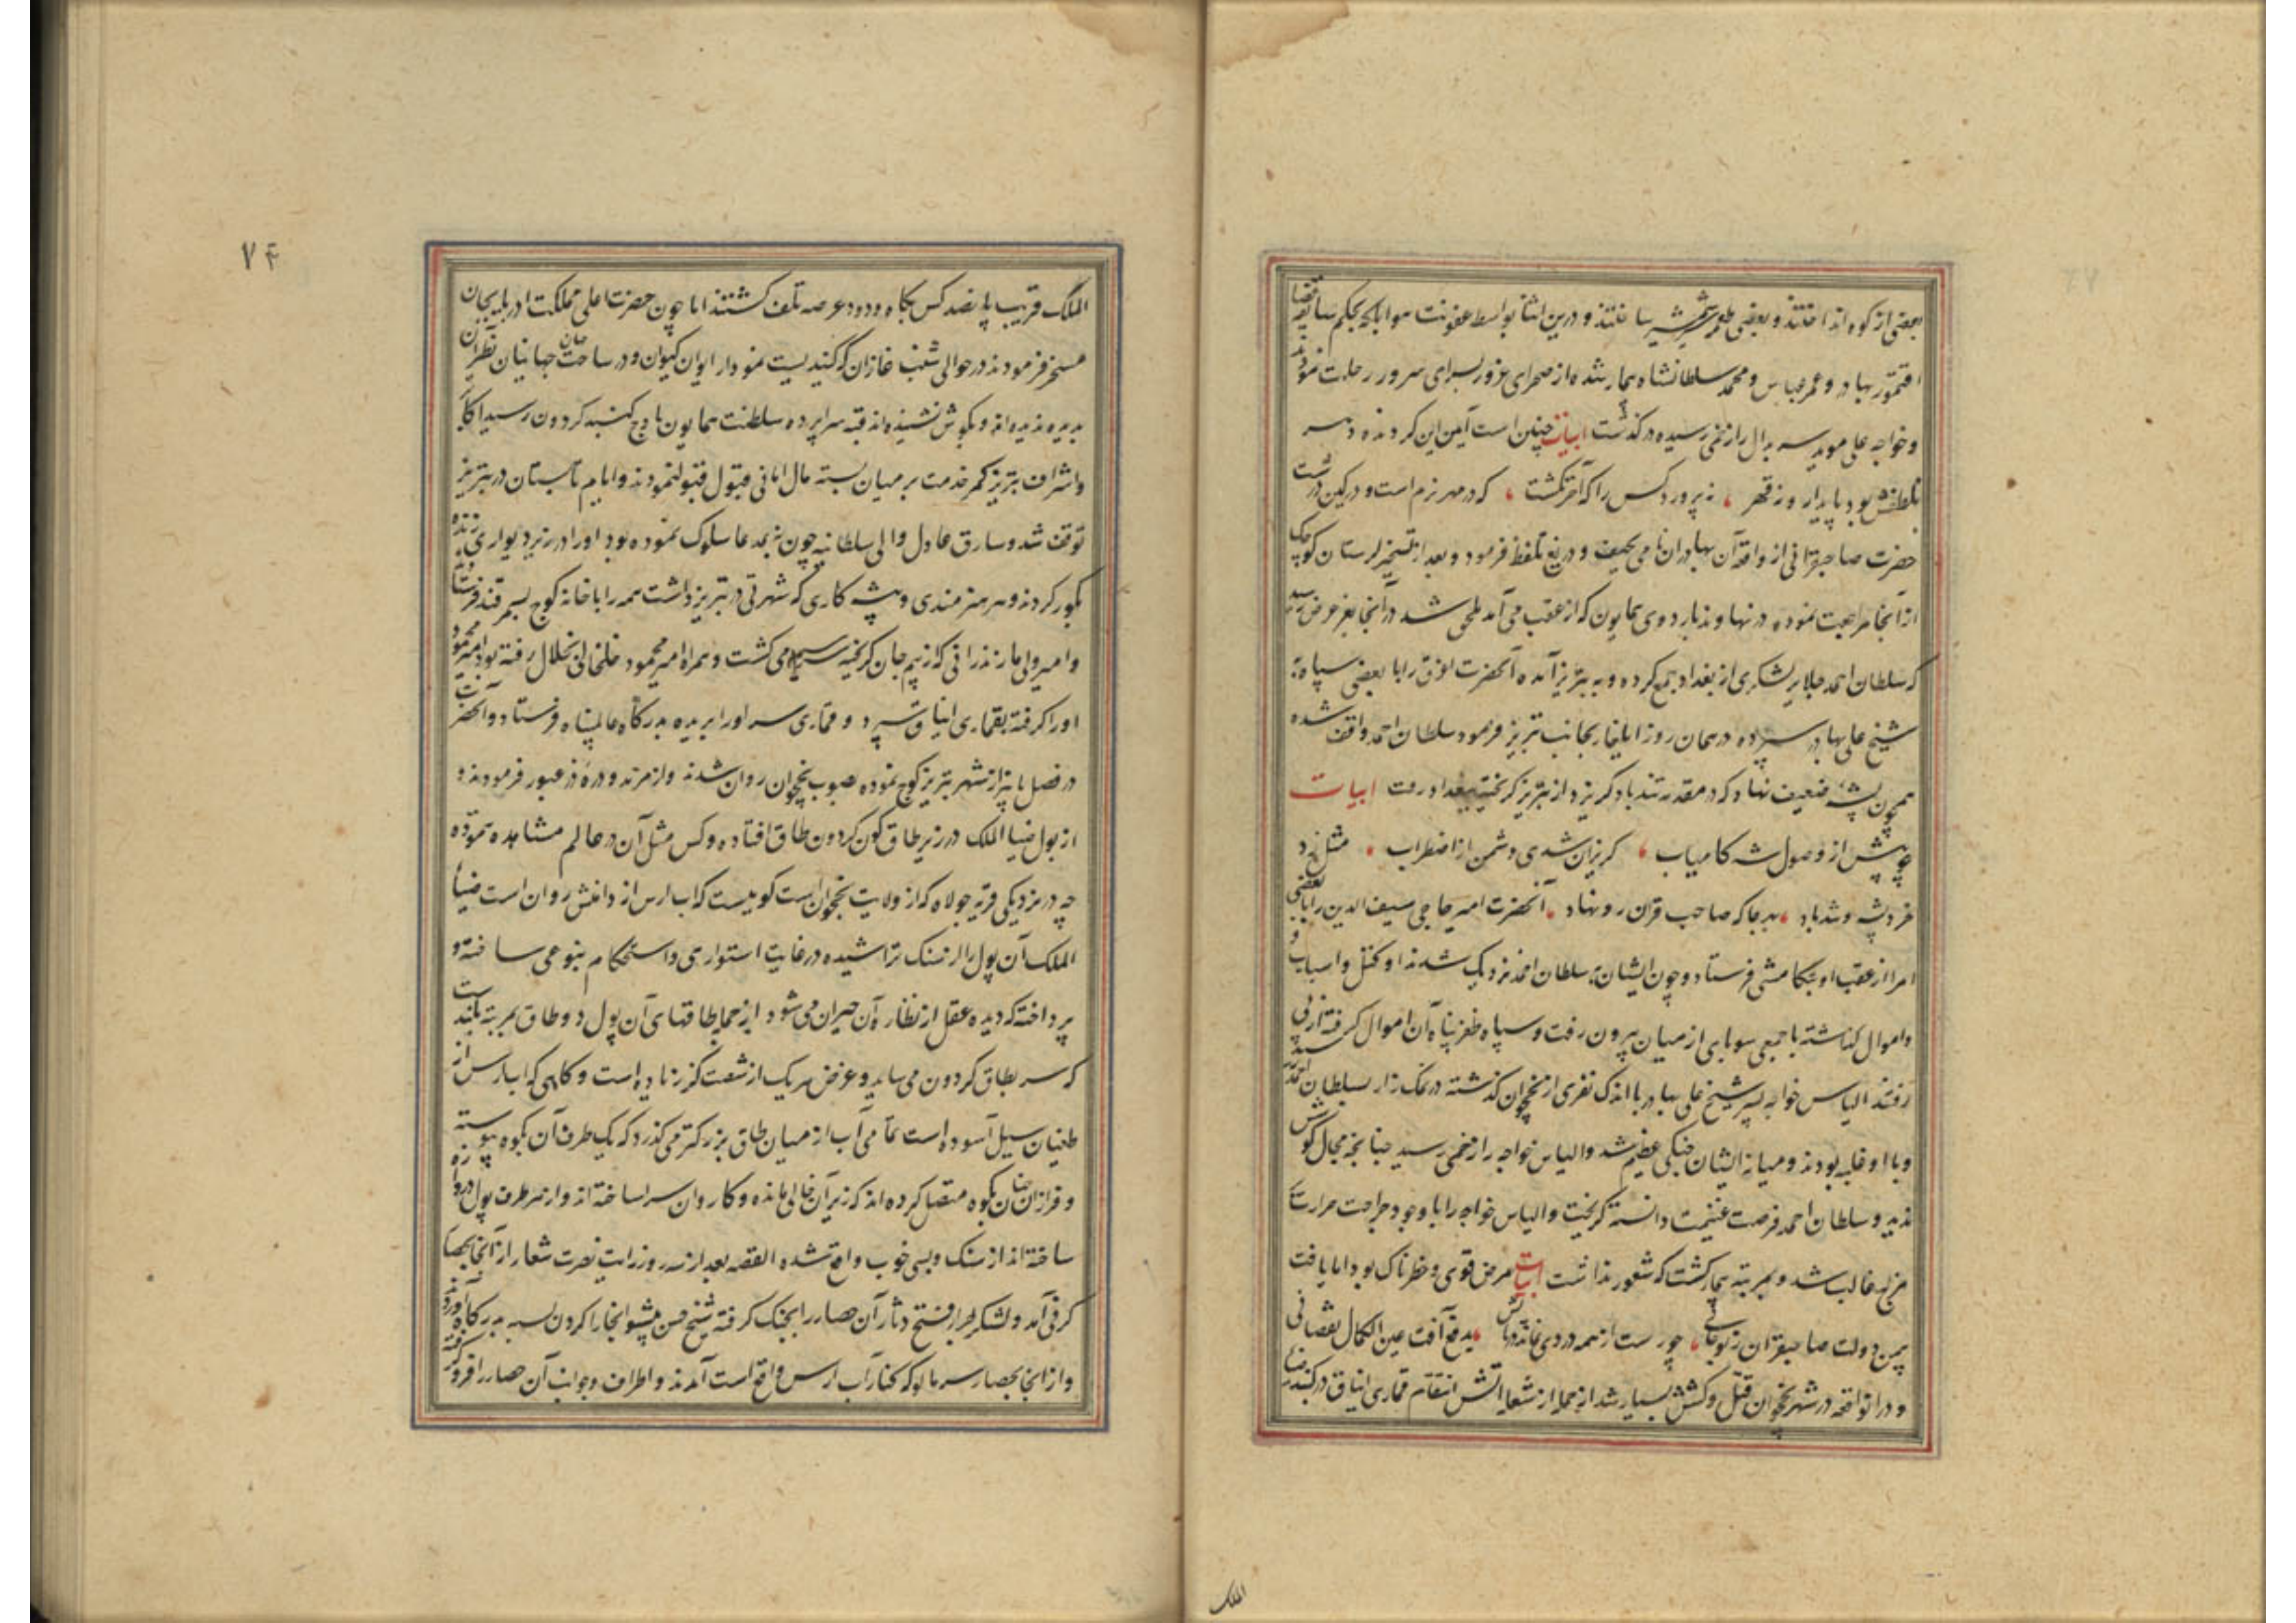 بعضی از کوه انداختند و بعضی طعمه شمشیر ساختند و درین اثنا بواسطه عفونت هوا بحکم سابقه قضا
اقتمور بهادر و عمر عباس و محمد سلطانشاه بیمار شده از صحرای غرور بسرای سرور رحلت نمودند
و خواجه علی موید سربدال را زخمی رسیده در گذشت ابیات چنین است آیین این گردنده دهر
نه لطفش بود پایدار و نه قهر ، نپرورد کس را که آخر نکشت ، که در مهر نرم است و در کین درشت
حضرت صاحبقرانی از واقعه آن بهادران نامی بحیف و دریغ تلفظ فرمود و بعد از تسخیر لرستان کوچک
از آنجا مراجعت نموده در نهاوند باردوی همایون که از عقب می آمد ملحق شد در آنجا بعز عرض رسید
که سلطان احمد جلایر لشکری از بغداد جمع کرده و به تبریز آمده آنحضرت اغرق را با بعضی سپاه به
شیخ علی بهادر سپرده در همان روز ایلغار بجانب تبریز فرمود سلطان احمد واقف شده
همچون پشه ضعیف نهاد که در مقدم تند باد گریزد از تبریز گریخته ببغداد رفت ابیات
چو پیش از وصول شه کامیاب ، گریزان شدی دشمن از اضطراب ، مثل زد
خرد پشه و تندباد ، بهر جا که صاحب قران رو نهاد ، آنحضرت امیر حاجی سیف الدین را با بعضی
امرا از عقب او بتکامشی فرستاد و چون ایشان به سلطان احمد نزدیک شدند او کتل و اسباب و
و اموال گذاشته با جمعی سوباری از میان بیرون رفت و سپاه ظفرپناه آن اموال گرفته از پی
رفتند الیاس خواجه پسر شیخ علی بهادر با اندک نفری از نخجوان گذشته در نمک زار بسلطان احمد رسید
و با او غلبه بودند و میانه ایشان جنگی عظیم شد و الیاس خواجه را زخمی رسید چنانچه مجال کوشش
ندید و سلطان احمد فرصت غنیمت دانسته گریخت و الیاس خواجه را با وجود جراحت حرارت
مزاج غالب شد و بمرتبه بیمار گشت که شعور نداشت ابیات مرض قوی و خطرناک بود اما یافت
بیمن دولت صاحبقران ز نو جانی ، چو رست از همه دردی نماند در پایش ، بدفع آفت عین الکمال نقصانی
و در انواقعه در شهر نخجوان قتل و کشش بسیار شد از جمله از شعله آتش انتقام قماری ایناق در گنبد ضیا
الملک
۷۴
الملک قریب پانصد کس بکاه و دود عرصه تلف گشتند اما چون حضرت اعلی مملکت ادربایجان
مسخر فرمودند در حوالی شنب غازان که گنبدیست نمودار ایوان کیوان و در ساحت جهان جهانیان نظیر آن
بدیده ندیده اند و بگوش نشنیده اند قبه سراپرده سلطنت همایون باوج گنبد گردون رسید اکابر
و اشراف تبریز کمر خدمت بر میان بسته مال امانی قبول قبول نمودند و ایام تابستان در تبریز
توقف شد و سارق عادل والی سلطانیه چون نه بمدعا سلوک نموده بود او را در زیر دیواری زنده
بگور کردند و هر هنرمندی و پیشه کاری که شهرتی در تبریز داشت همه را با خانه کوچ بسمرقند فرستادند
و امیر ولی مازندرانی که از بیم جان گریخته سراسیمه می گشت و همراه امیر محمود خلخالی بخلخال رفته بود امیر محمود
او را گرفته بقماری ایناق سپرد و قماری سر او را بریده بدرگاه عالمپناه فرستاد و آنحضرت
در فصل پاییز از شهر تبریز کوچ نموده بصوب نخجوان روان شدند و از مرند و دره دز عبور فرمودند و
از پول ضیا الملک در زیر طاق گون گردون طاق افتاده و کس مثل آن در عالم مشاهده ننموده
چه در نزدیکی قریه جولاه که از ولایت نخجوان است کوهیست که اب ارس از دامنش روان است ضیا
الملک آن پول را از سنگ تراشیده در غایت استواری و استحکام بنوعی ساخته و
پرداخته که دیده عقل از نظاره آن حیران می شود از جمله طاقهای آن پول دو طاق بمرتبه بلند است
که سر بطاق گردون می ساید و عرض هر یک از شصت گز زیاده است و گاهی که اب ارس از
طغیان سیل آسوده است تمامی آب از میان طاق بزرگتر می گذرد که یک طرف آن بکوه پیوسته
و فراز آن چنان بکوه متصل کرده اند که زیر آن خالی مانده و کاروان سرا ساخته اند و از هر طرف پول دروازه
ساخته اند از سنگ و بسی خوب واقع شده القصه بعد از سه روز رایت نصرت شعار از آنجا بحصار
کرفی آمد و لشکر جرار فتح دثار آن حصار را بجنگ گرفته شیخ حسن پیشوا انجا را گردن بسته بدرگاه آوردند
و از انجا بحصار سرمالو که کنار آب ارس واقع است آمدند و اطراف و جوانب آن حصار را فرو گرفته